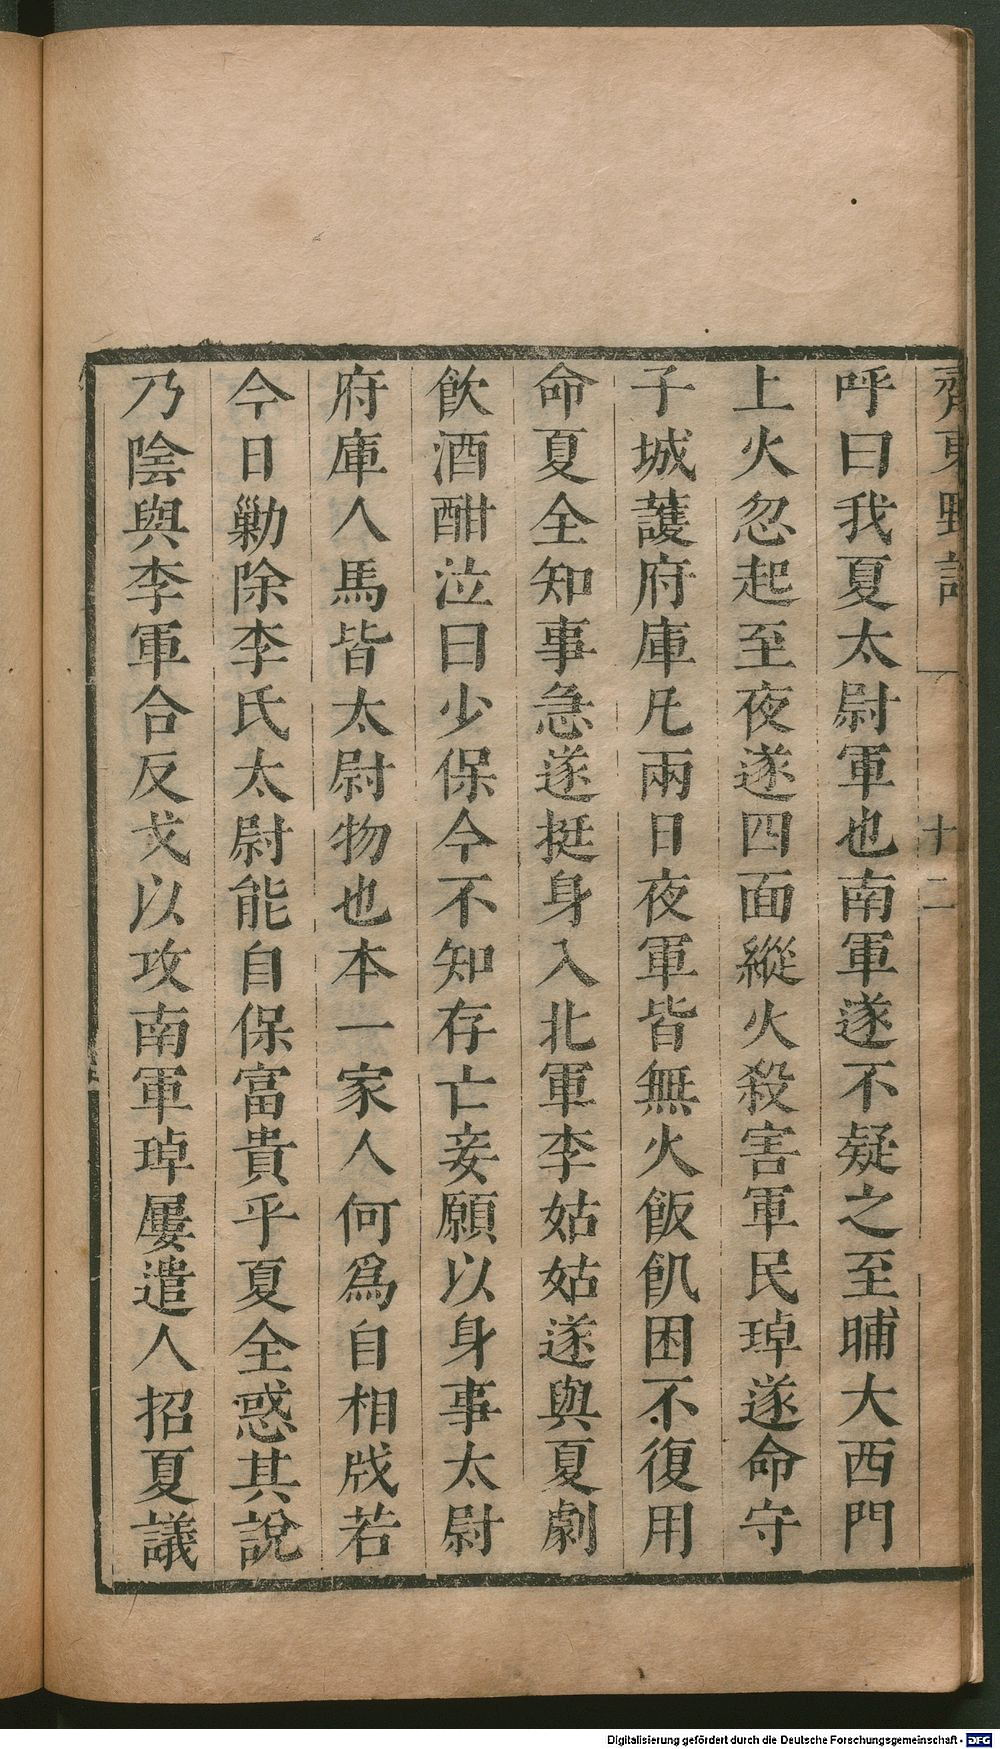 齊東野語 十二
呼曰我夏太尉軍也南軍遂不疑之至晡大西門
上火忽起至夜遂四面縱火殺害軍民琸遂命守
子城護府庫凡兩日夜軍皆無火飯飢困不復用
命夏全知事急遂挺身入北軍李姑姑遂與夏劇
飲酒酣泣曰少保今不知存亡妾願以身事太尉
府庫人馬皆太尉物也本一家人何爲自相戕若
今日勦除李氏太尉能自保富貴乎夏全惑其說
乃陰與李軍合反戈以攻南軍琸屢遣人招夏議
Digitalisierung gefördert durch die Deutsche Forschungsgemeinschaft - DFG